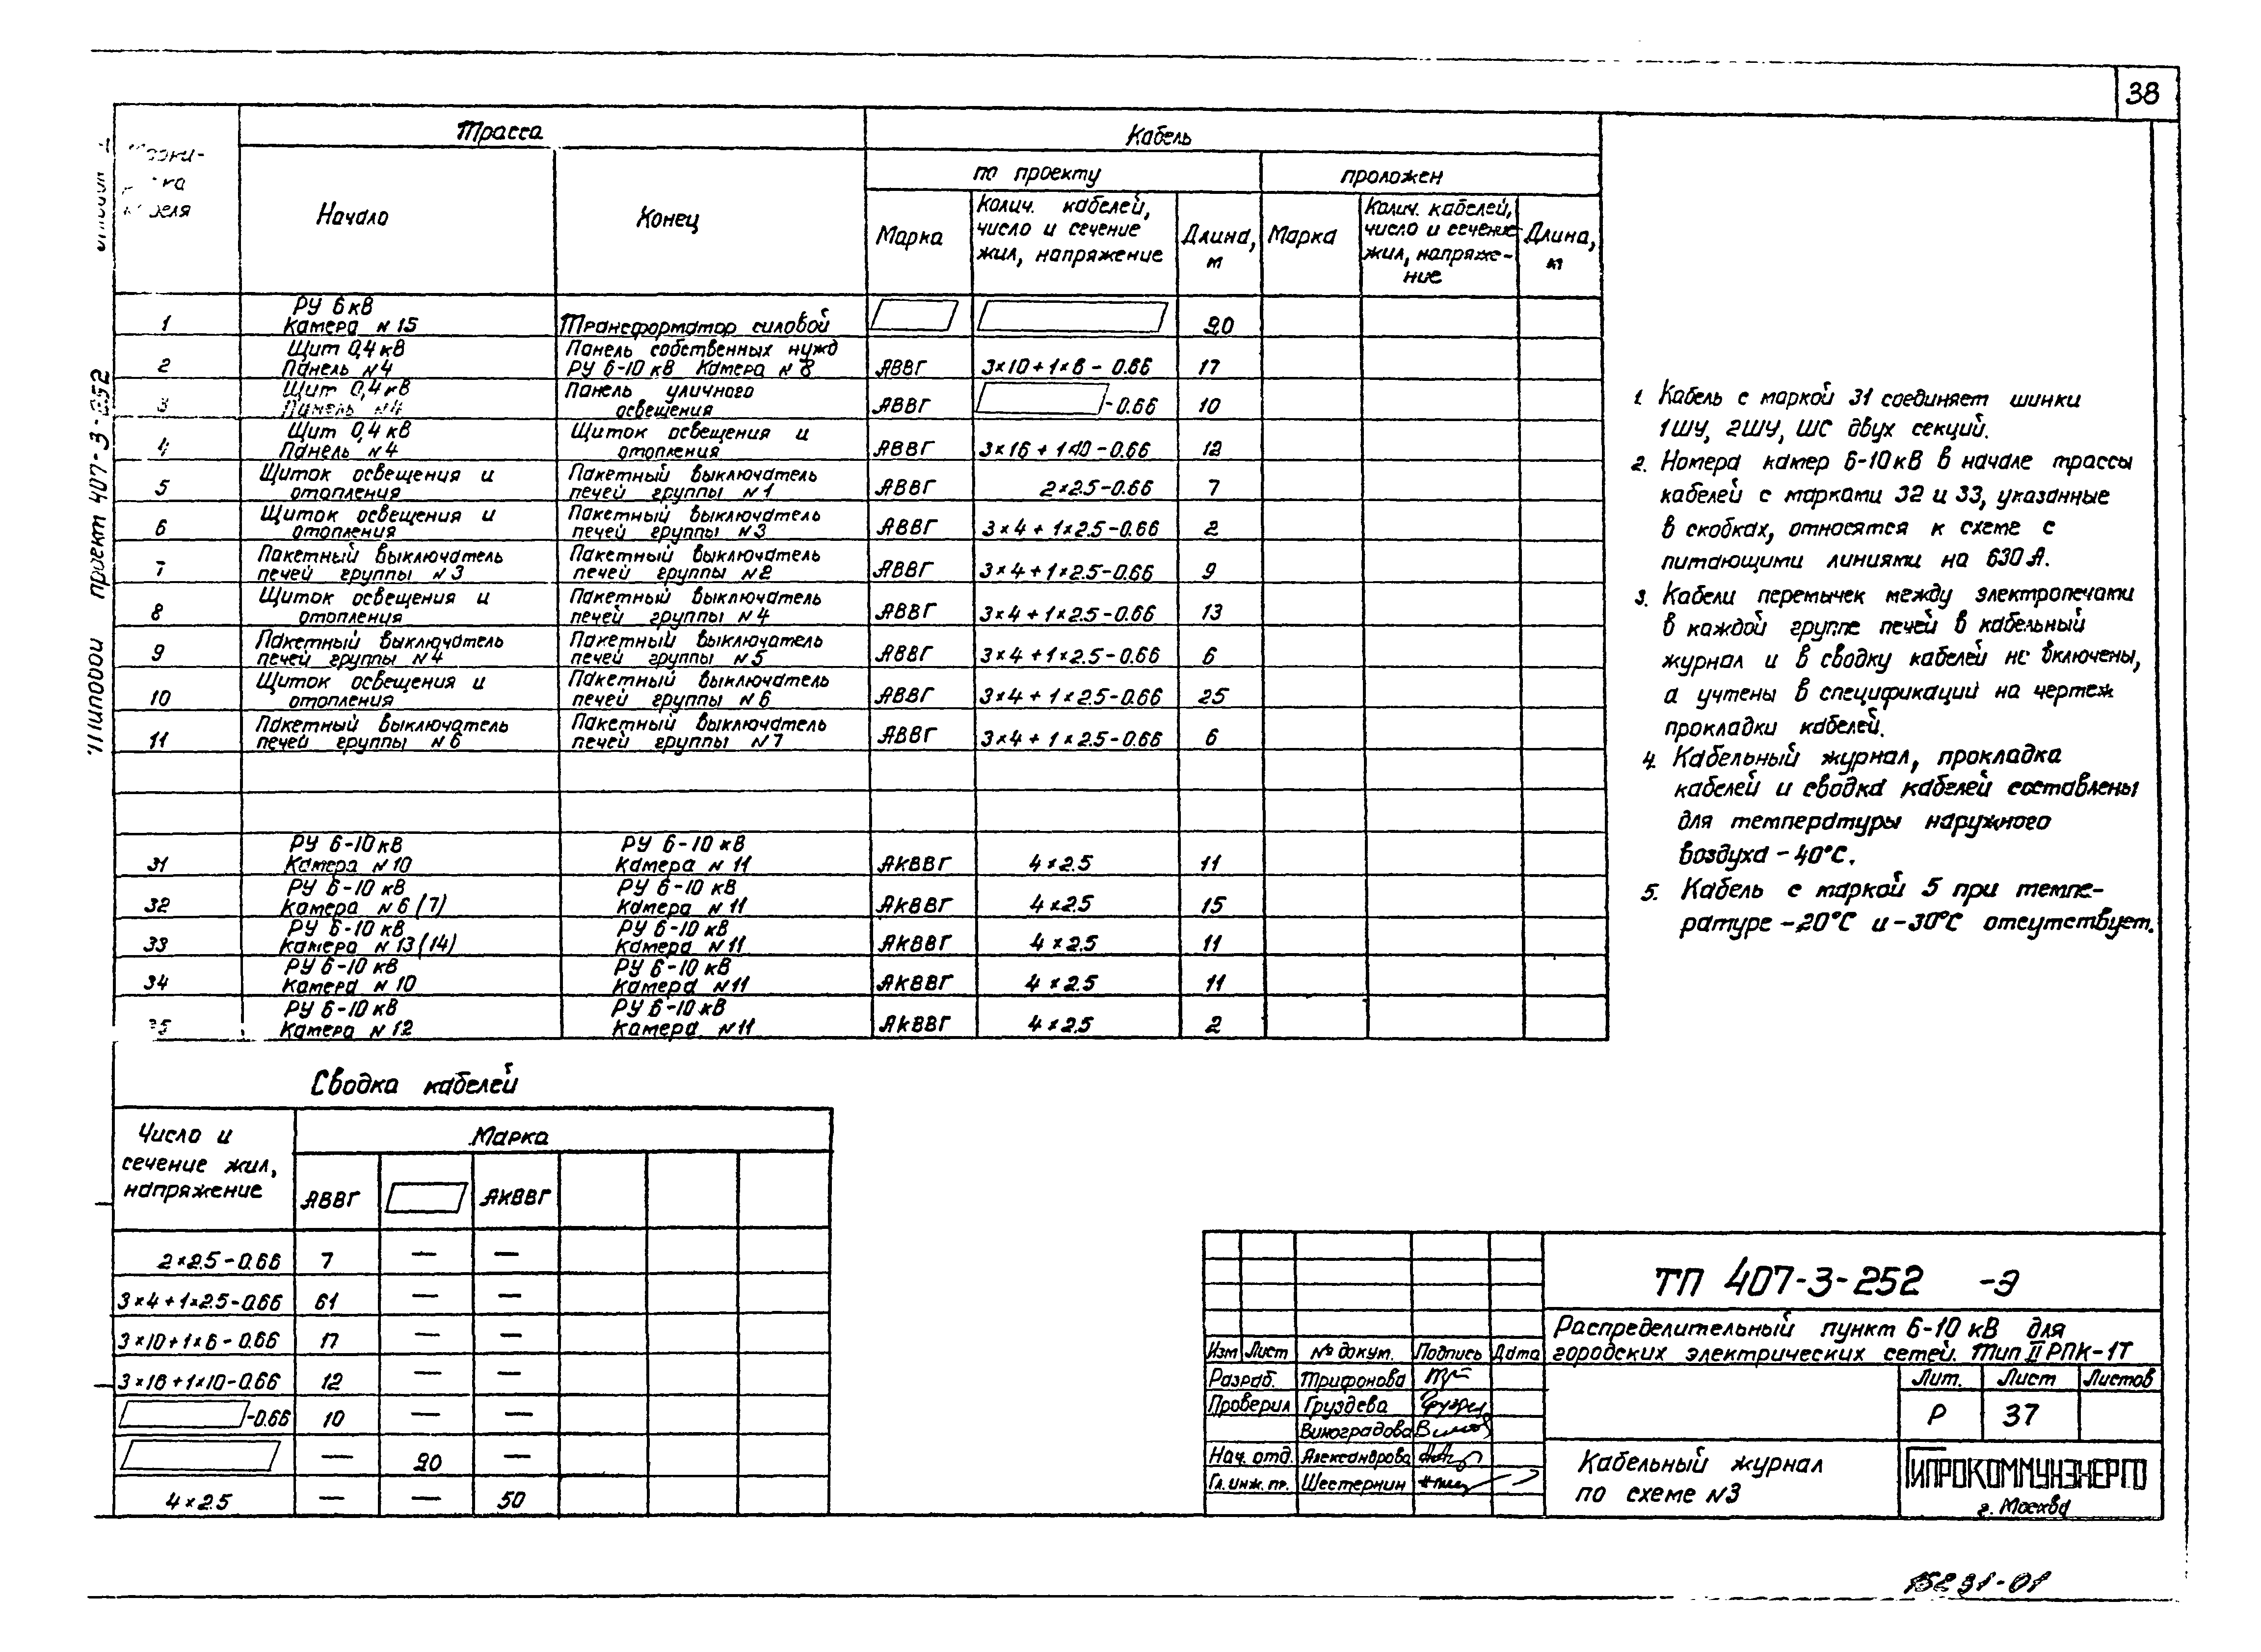 38
Трасса
Кабель
по проекту
проложен
Начало
Конец
Марка
Колич. кабелей, число и сечение жил, напряжение
Длина, м
Марка
Колич. кабелей, число и сечение жил, напряже-ние
Длина, м
1 РУ 6кВ Камера N15 Трансформатор силовой 20
2 Щит 0,4кВ Панель N4 Панель собственных нужд РУ 6-10 кВ Камера N8 АВВГ 3×10+1×6-0.66 17
3 Щит 0,4кВ Панель N4 Панель уличного освещения АВВГ -0.66 10
4 Щит 0,4кВ Панель N4 Щиток освещения и отопления АВВГ 3×16+1×10-0.66 12
5 Щиток освещения и отопления Пакетный выключатель печей группы N1 АВВГ 2×2.5-0.66 7
6 Щиток освещения и отопления Пакетный выключатель печей группы N3 АВВГ 3×4+1×2.5-0.66 2
7 Пакетный выключатель печей группы N3 Пакетный выключатель печей группы N2 АВВГ 3×4+1×2.5-0.66 9
8 Щиток освещения и отопления Пакетный выключатель печей группы N4 АВВГ 3×4+1×2.5-0.66 13
9 Пакетный выключатель печей группы N4 Пакетный выключатель печей группы N5 АВВГ 3×4+1×2.5-0.66 6
10 Щиток освещения и отопления Пакетный выключатель печей группы N6 АВВГ 3×4+1×2.5-0.66 25
11 Пакетный выключатель печей группы N6 Пакетный выключатель печей группы N7 АВВГ 3×4+1×2.5-0.66 6
31 РУ 6-10кВ Камера N10 РУ 6-10 кВ Камера N11 АКВВГ 4×2.5 11
32 РУ 6-10 кВ Камера N6(7) РУ 6-10 кВ Камера N11 АКВВГ 4×2.5 15
33 РУ 6-10 кВ Камера N13(14) РУ 6-10 кВ Камера N11 АКВВГ 4×2.5 11
34 РУ 6-10 кВ Камера N10 РУ 6-10 кВ Камера N11 АКВВГ 4×2.5 11
35 РУ 6-10 кВ Камера N12 РУ 6-10 кВ Камера N11 АКВВГ 4×2.5 2
1. Кабель с маркой 31 соединяет шинки
1ШУ, 2ШУ, ШС двух секций.
2. Номера камер 6-10кВ в начале трассы
кабелей с марками 32 и 33, указанные
в скобках, относятся к схеме с
питающими линиями на 630А.
3. Кабели перемычек между электропечами
в каждой группе печей в кабельный
журнал и в сводку кабелей не включены,
а учтены в спецификации на чертеж
прокладки кабелей.
4. Кабельный журнал, прокладка
кабелей и сводка кабелей составлены
для температуры наружного
воздуха -40°С.
5. Кабель с маркой 5 при темпе-
ратуре -20°С и -30°С отсутствует.
проект 407-3-252
Сводка кабелей
Число и сечение жил, напряжение
Марка
АВВГ АКВВГ
2×2.5-0.66 7 — —
3×4+1×2.5-0.66 61 — —
3×10+1×6-0.66 17 — —
3×16+1×10-0.66 12 — —
-0.66 10 — —
— 20 —
4×2.5 — — 50
ТП 407-3-252 -Э
Распределительный пункт 6-10 кВ для
городских электрических сетей. Тип II РПК-1Т
Изм Лист № докум. Подпись Дата
Разраб. Трифонова
Проверил Груздева
Виноградова
Нач. отд. Александрова
Гл. инж. пр. Шестернин
Лит. Лист Листов
Р 37
Кабельный журнал
по схеме N3
ГИПРОКОММУНЭНЕРГО
г. Москва
15231-01